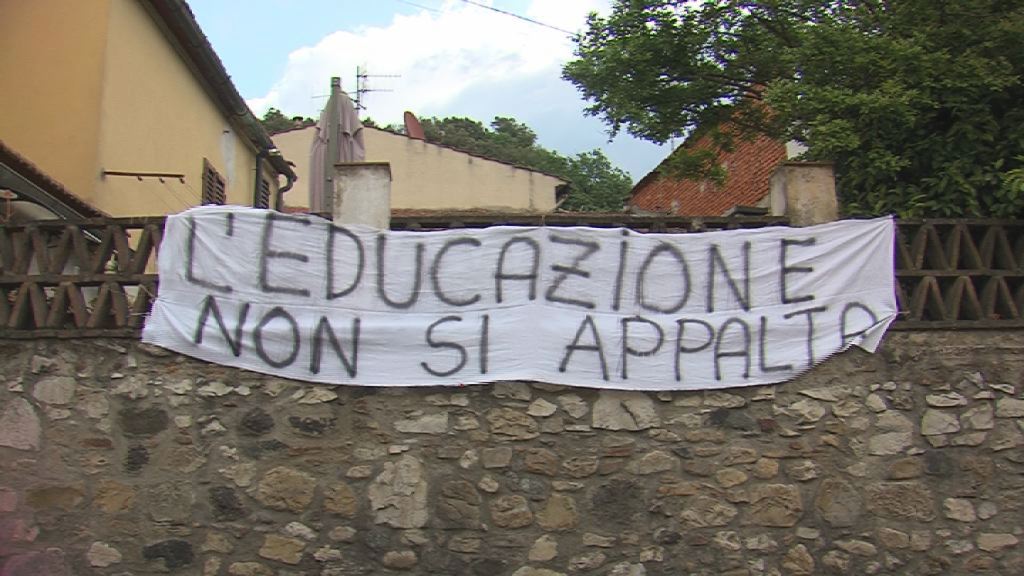 L'EDUCAZIONE
NON SI APPALTA